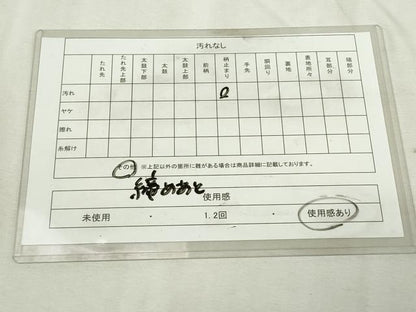 汚れなし
たれ先 たれ先上部 太鼓下部 太鼓 太鼓上部 前柄 柄止まり 手先 胴回り 裏地 表地所々 耳部分 端部分
汚れ
ヤケ
擦れ
糸解け
その他 ※上記以外の箇所に難がある場合は商品詳細に記載しております。
締めあと
使用感
未使用 ・ 1.2回 ・ 使用感あり